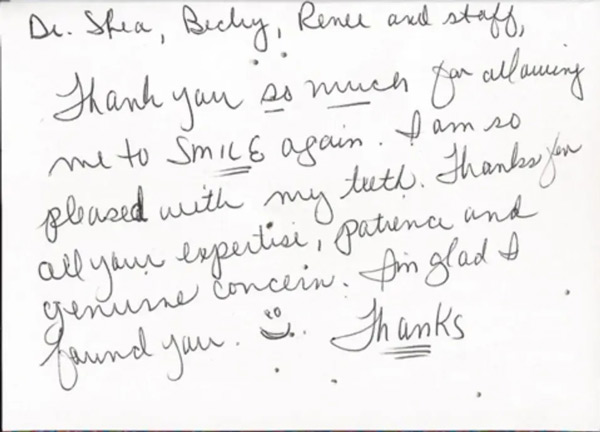 Dr. Shea, Becky, Renee and staff,
Thank you so much for allowing
me to SMILE again. I am so
pleased with my teeth. Thanks for
all your expertise, patience and
genuine concern. I'm glad I
found you. Thanks